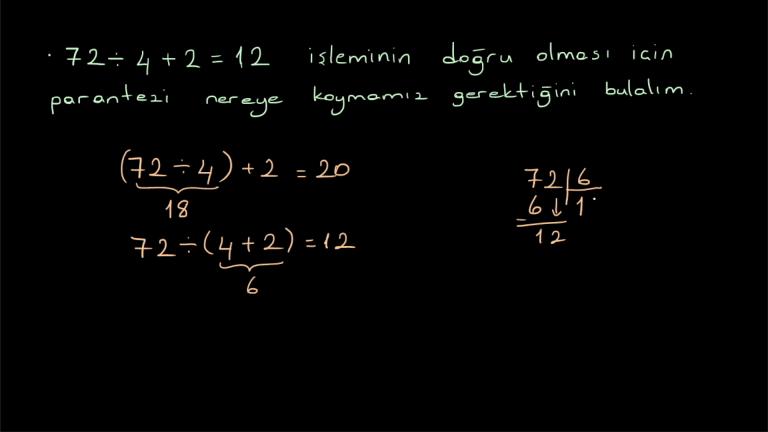 · 72 ÷ 4 + 2 = 12 işleminin doğru olması için
parantezi nereye koymamız gerektiğini bulalım.
(72 ÷ 4) + 2 = 20
18
72 ÷ (4 + 2) = 12
6
72 | 6
- 6 ↓ 1
12